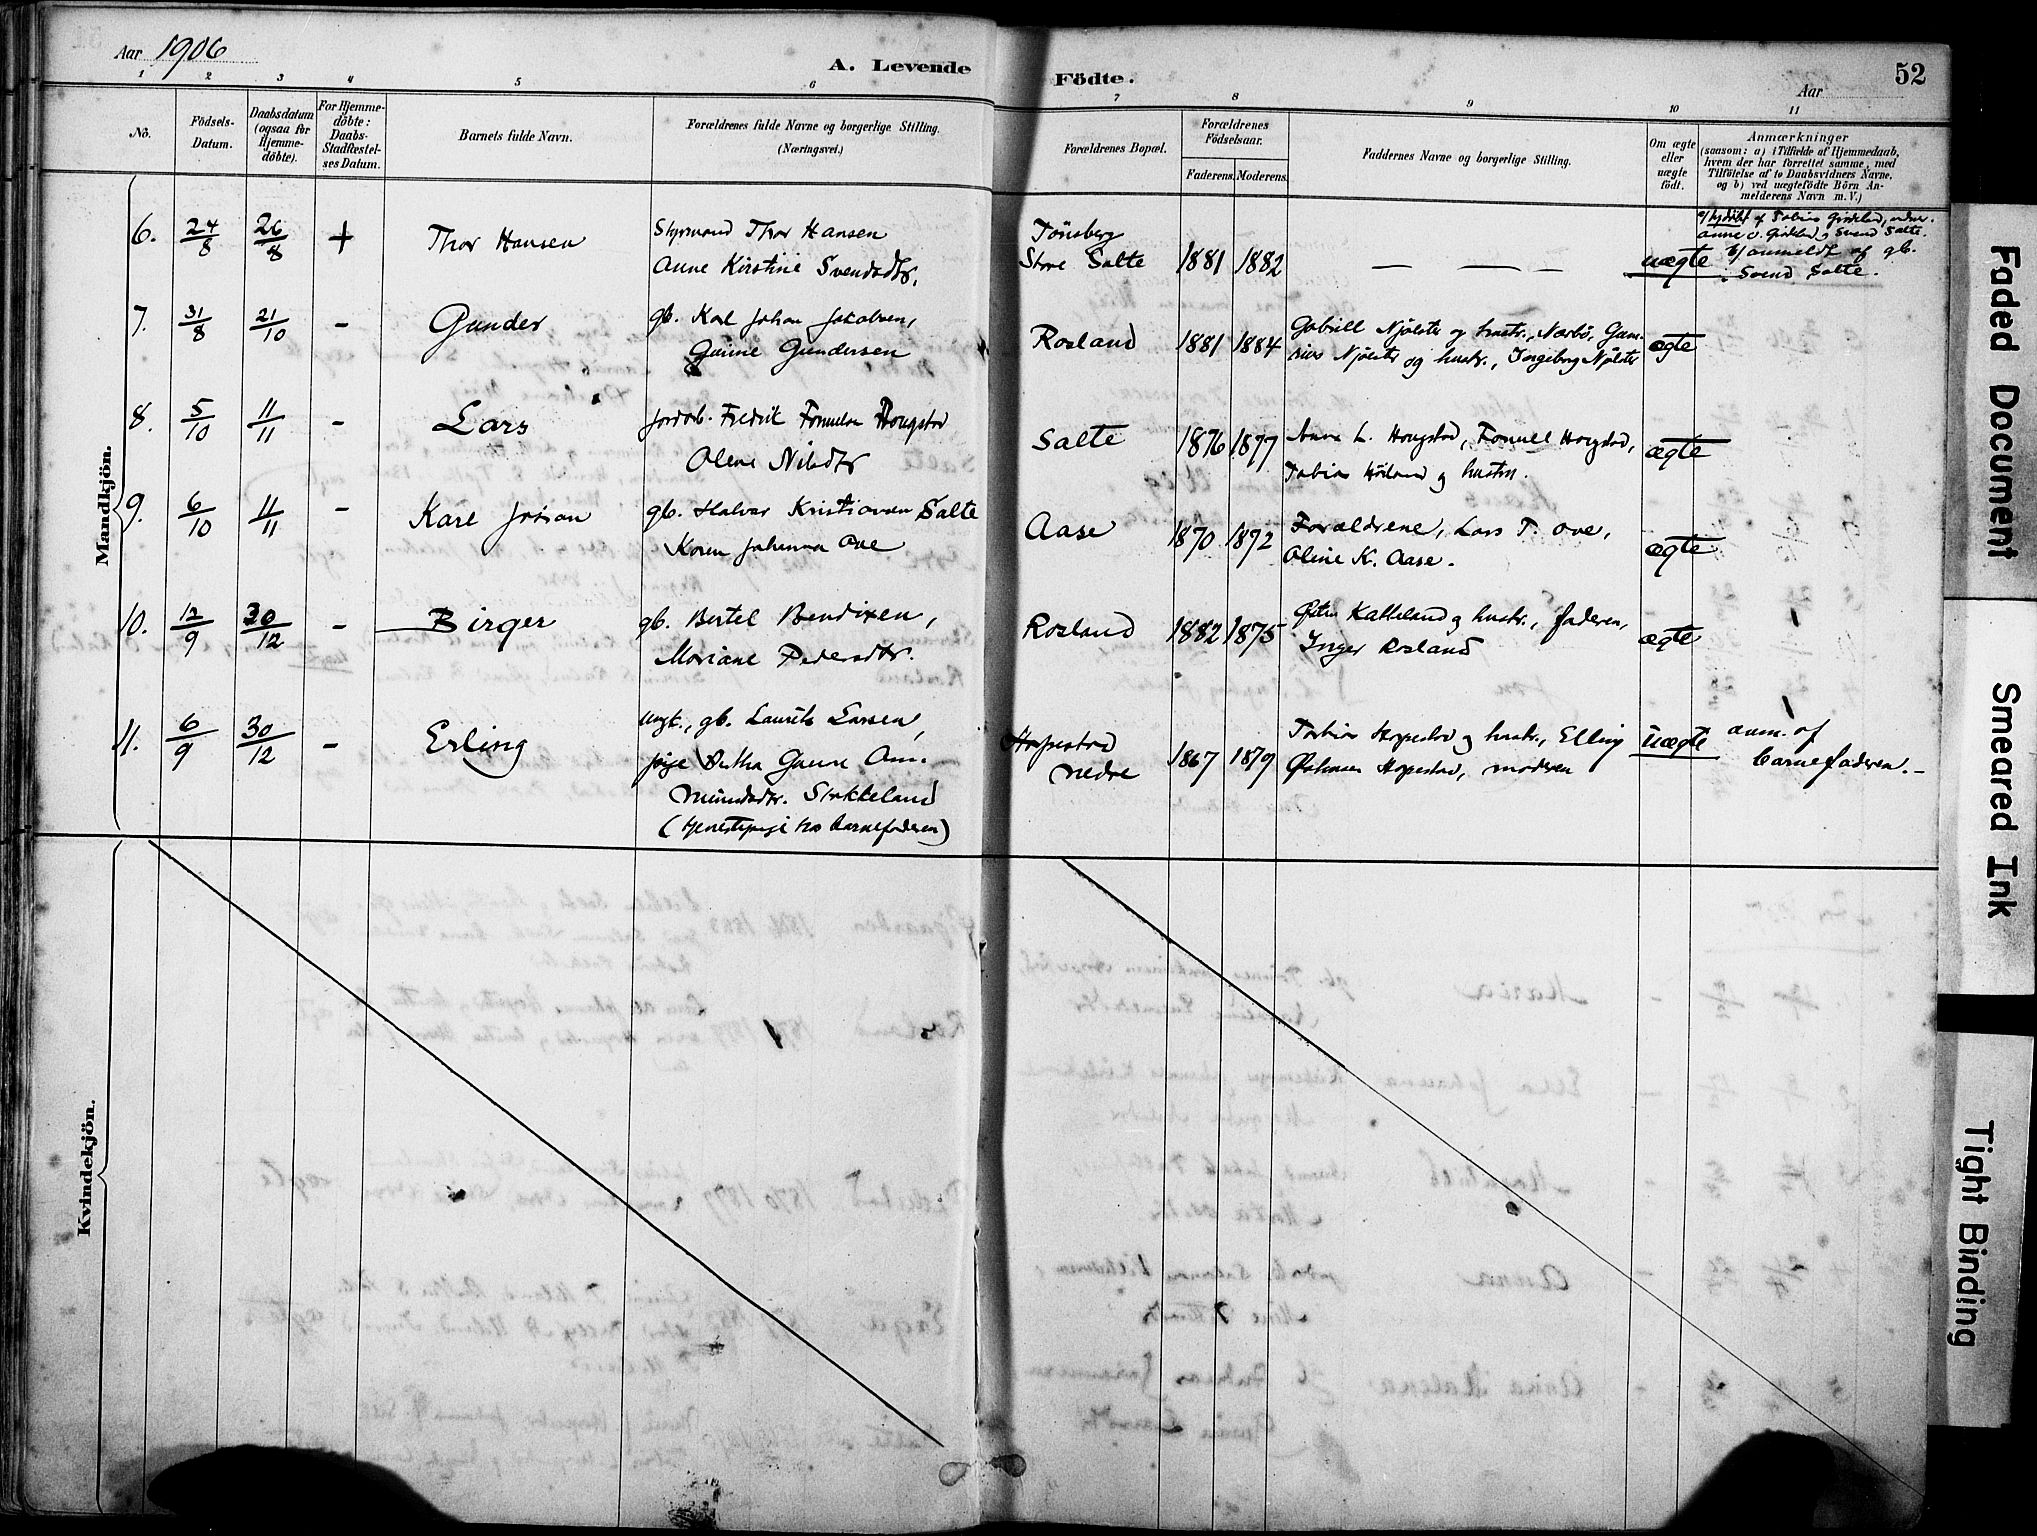 Aar 1906
A. Levende Födte.
Aar
52
1 2 3 4 5 6 7 8 9 10 11
No.
Födsels-Datum.
Daabsdatum (ogsaa for Hjemme-döbte).
For Hjemme-döbte: Daabs-Stadfæstel-ses Datum.
Barnets fulde Navn.
Forældrenes fulde Navne og borgerlige Stilling.
(Næringsvei.)
Forældrenes Bopæl.
Forældrenes Födselsaar.
Faderens. Moderens.
Faddernes Navne og borgerlige Stilling.
Om ægte eller uægte födt.
Anmærkninger
(saasom: a) i Tilfælde af Hjemmedaab,
hvem der har forrettet samme, med
Tilföielse af to Daabsvidners Navne,
og b) ved uægtefödte Börn An-
melderens Navn m. V.)
Mandkjön.
6. 24/8 26/8 + Thor Hansen
Styrmand Thor Hansen
Anne Kirstine Svendsdtr.
Tönsberg
Store Salte 1881 1882 — — — uægte
b/ anmeldt af gb.
Svend Salte.
7. 31/8 21/10 - Gunder
gb. Karl Johan Jakobsen,
Gurine Gundersen
Rosland 1881 1884
Gabriell Njølstr og hustr., Nærbö, Gun-
Njølstr og hustr., Ingeborg Njølstr
ægte
8. 5/10 11/11 - Lars
jordarb. Fredrik Hougstad
Olene Nilsdtr
Salte 1876 1877
L. Hougstad, Hougstad,
Tobias Höiland og hustru.
ægte
9. 6/10 11/11 - Karl Johan
gb. Halvor Kristiansen Salte
Karen Johanna Ove
Aase 1870 1872
Forældrene, Lars T. Ove,
Oline K. Aase.
ægte
10. 12/9 30/12 - Birger
gb. Bertel Bendixen,
Mariane Pedersdtr.
Rosland 1882 1875
Kalleland og hustr., faderen,
Inger Rosland
ægte
11. 6/9 30/12 - Erling
ungk., gb. Laurits Larsen,
pige Bertha Gurine Am-
mundsdtr. Stokkeland
(tjenestepige hos barnefaderen)
Hopestad
nedre 1867 1879
Tobias Hopestad og hustr., Elling
Johannes Hopestad, moderen
uægte
anm. af
barnefaderen.-
Kvindekjön.
Faded Document
Smeared Ink
Tight Binding